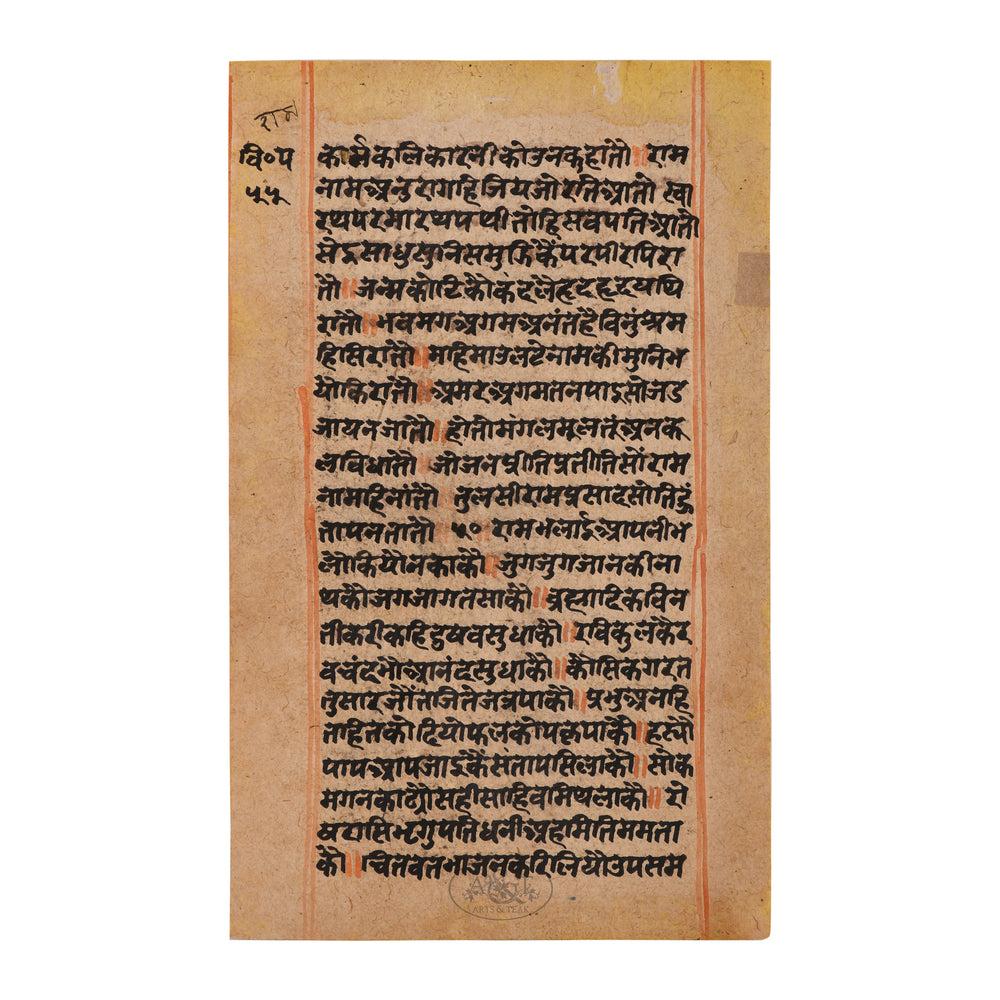 राम
वि०प
५५
कालकलिकारनीकोउनकहातौ॥ राम
नामअनुरागहिजियजोरतिआतो स्वा
रथपरमारथपथीतोहिसबपतिआतौ
सेइसाधुसुनिसमुझिकैंपरपीरपिरा
तौ॥ जन्मकोटिकौकंदलैहृदहृदयथि
रातौ॥ भवमगअगमअनंतहैविनुंश्रम
हिसिरातौ॥ महिमाउलटेनामकीमुनिभ
योकिरातौ॥ अमरअगमतनपाइसोजड
जायनजातौ॥ होतोमंगलमूलतूंअनकू
लविधातौ॥ जोजनप्रीतिप्रतीतिसौंराम
नामहिनांतौ॥ तुलसीरामप्रसादसोतिहु
तापनतातौ॥ ५० रामभलाईआपनीभ
लोकियौनकाकौ॥ जुगजुगजानकीना
थकौजगजागतसाकौ॥ ब्रह्मादिकविन
तीकरीकहिदुषवसुधाकौ॥ रविकुलकैर
वचंदभौआनंदसुधाकौ॥ कौसिकगरत
तुसारजौंतजितेजत्रपाकौ॥ प्रभुअनहि
तहितकोदियोफलकोपकृपाकौ॥ हस्यौ
पापआपजाइकैंसंतापसिलाकौ॥ सोक
मगनकाढ्यौसहीसाहिवमिथलाकौ॥ रो
षरासिभृगुपतिधनीअहमितिममता
कौ॥ चितवतभाजनकरिलियौउपसम
ARTS & TEAK